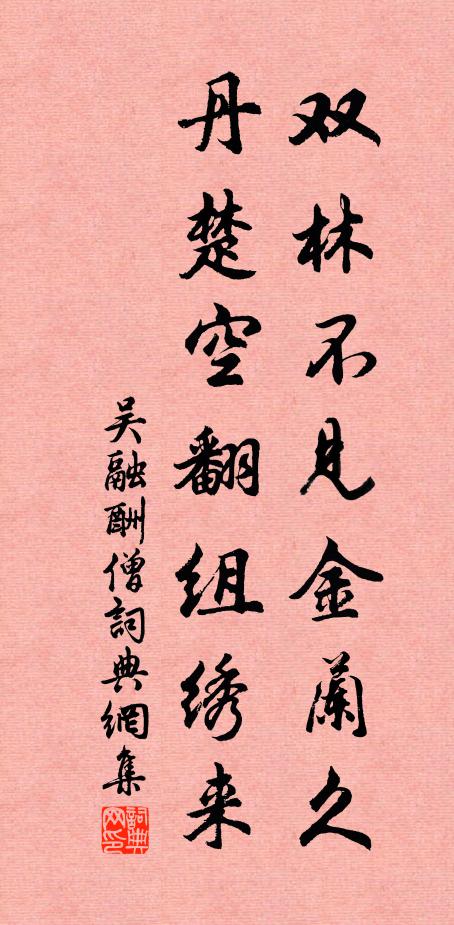 双林不见金蘭久
丹楚空翻组绣来
吴融酬僧詞典網集
詞典网印